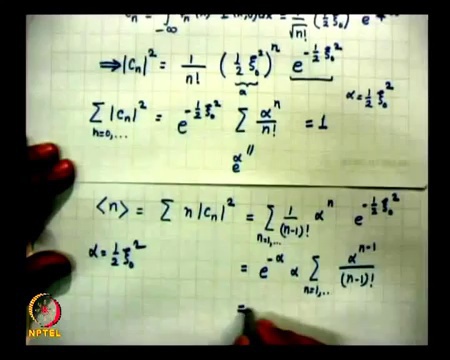 n = ∫_{-∞} n(x) (x,0)dx = 1/√n! (1/2 ξ₀²) e
⇒|Cₙ|² = 1/n! (1/2 ξ₀²)ⁿ e^{-1/2 ξ₀²}
α
α = 1/2 ξ₀²
∑_{n=0,...} |Cₙ|² = e^{-1/2 ξ₀²} ∑ αⁿ/n! = 1
e^α
⟨n⟩ = ∑ n|Cₙ|² = ∑_{n=1,..} 1/(n-1)! αⁿ e^{-1/2 ξ₀²}
α = 1/2 ξ₀²
= e^{-α} α ∑_{n=1,..} α^{n-1}/(n-1)!
=
NPTEL